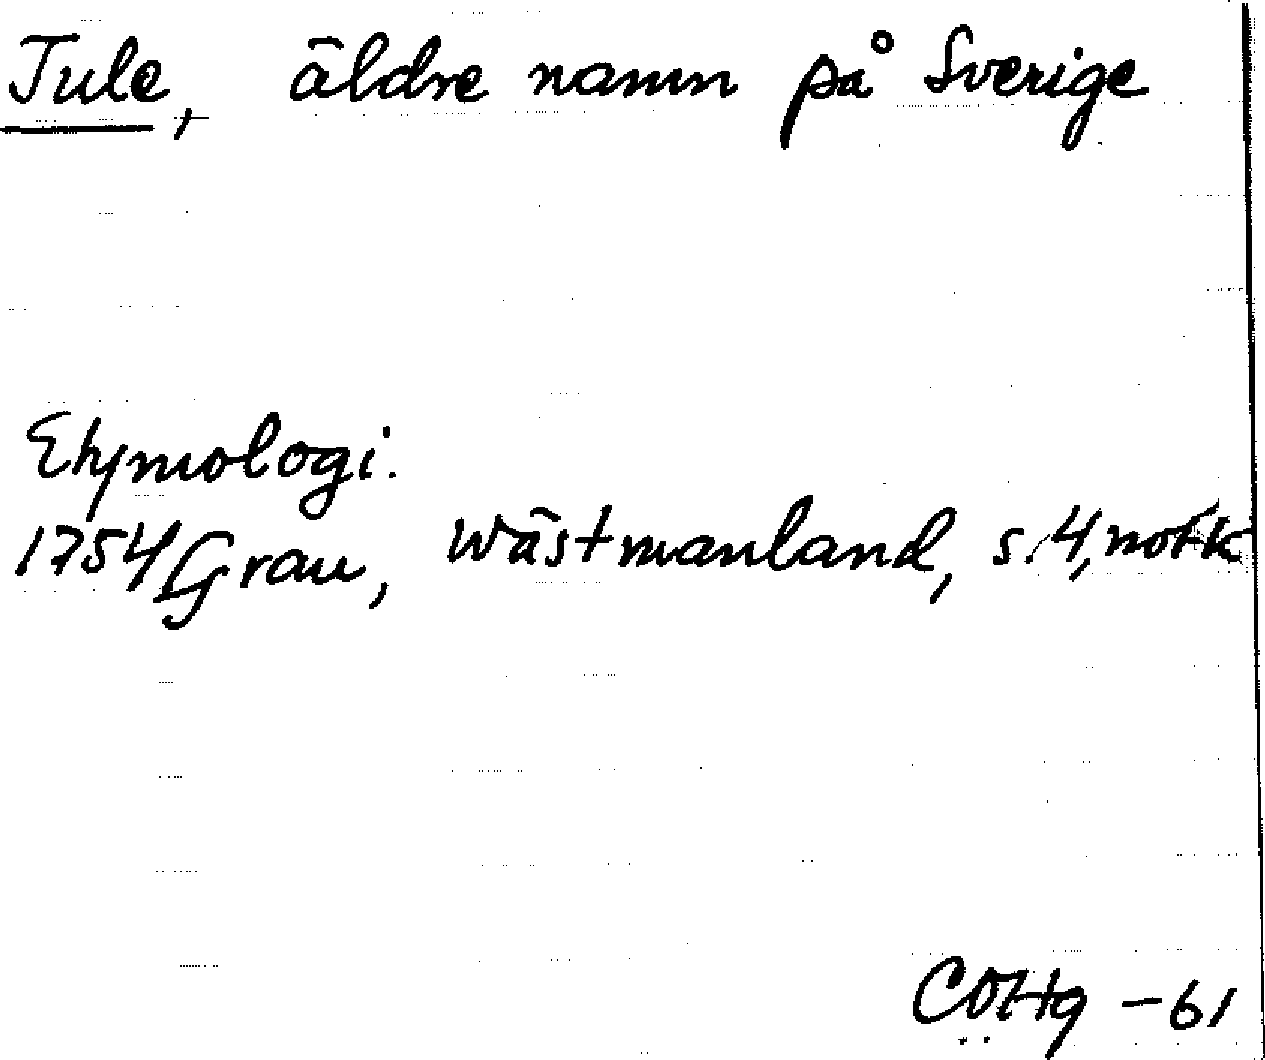 Tule, äldre namn på Sverige
Etymologi.
1754 Grau, Wästmanland, s. 4, not k
CÖHg -61